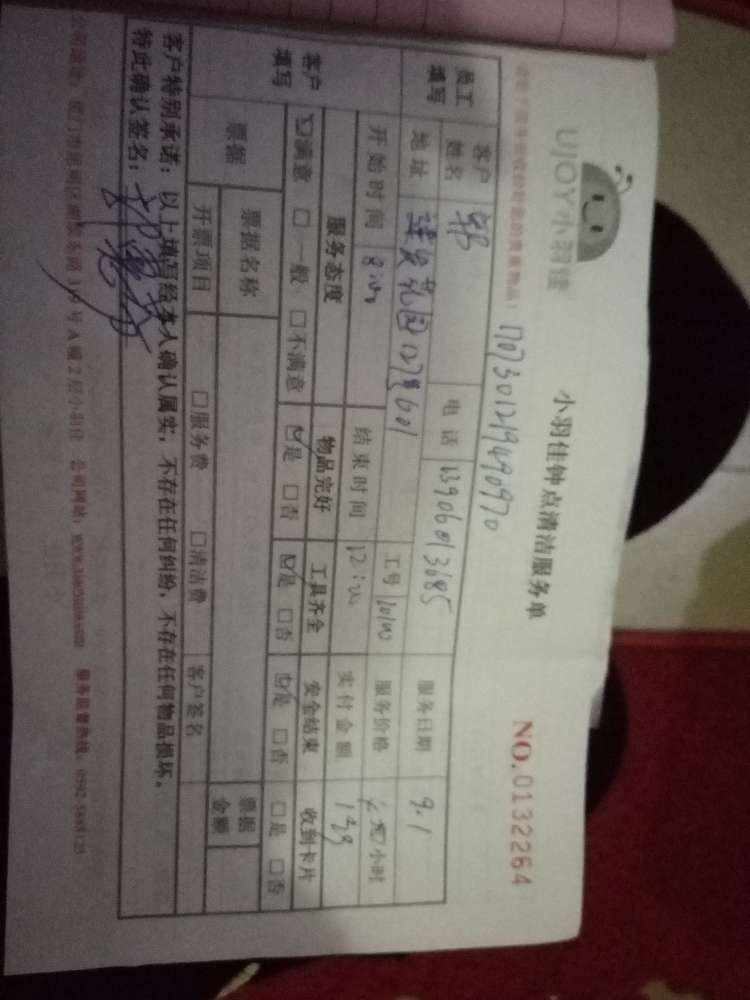 UJOY小羽佳
小羽佳钟点清洁服务单
NO.0132264
1707301219490970
员工填写 客户姓名 郭 电话 13906013685 服务日期 9.1
地址 127号601 工号 10100 服务价格 元/小时
开始时间 8:00 结束时间 12:00 实付金额 139
客户填写 服务态度 物品完好 工具齐全 安全结束 收到卡片
☑满意 □一般 □不满意 ☑是 □否 ☑是 □否 ☑是 □否 □是 □否
票据 票据名称 票据金额
开票项目 □服务费 □清洁费 客户签名
客户特别承诺：以上填写经本人确认属实，不存在任何纠纷，不存在任何物品损坏。
特此确认签名：
319号A幢2层小羽佳 公司网站： 服务监督热线：0592-5888123